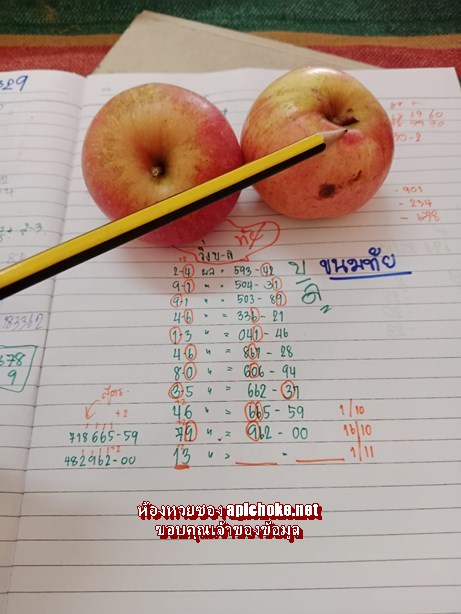 วิ่งบ-ล
2-4 ผล = 593-42
9-1 " = 504-31
9-1 " = 503-89
4-6 " = 336-21
1-3 " = 041-46
4-6 " = 867-28
8-0 " = 606-94
3-5 " = 662-37
46 " = 665-59 1/10
79 " = 962-00 16/10
13 " = - 1/11
ขนมทัย
บ
ล
สูตร
+2
718665-59
+2
482962-00
30-2
- 901
- 234
- 678
83362
678
9
ห้องหวยซอง apichoke.net
ขอบคุณเจ้าของข้อมูล